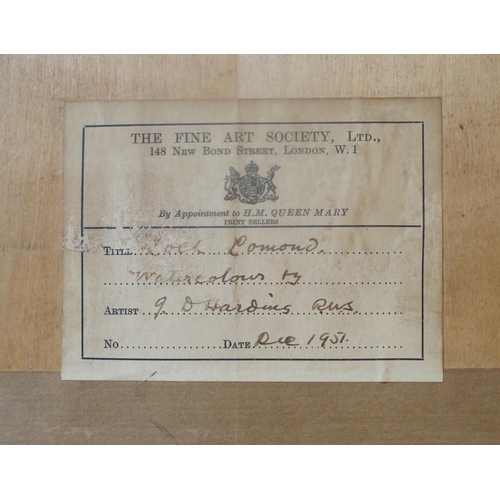 THE FINE ART SOCIETY, LTD.,
148 NEW BOND STREET, LONDON, W. 1
By Appointment to H.M. QUEEN MARY
PRINT SELLERS
TITLE Loch Lomond.
Watercolour by
ARTIST J D Harding RWS
No DATE Dec 1951.